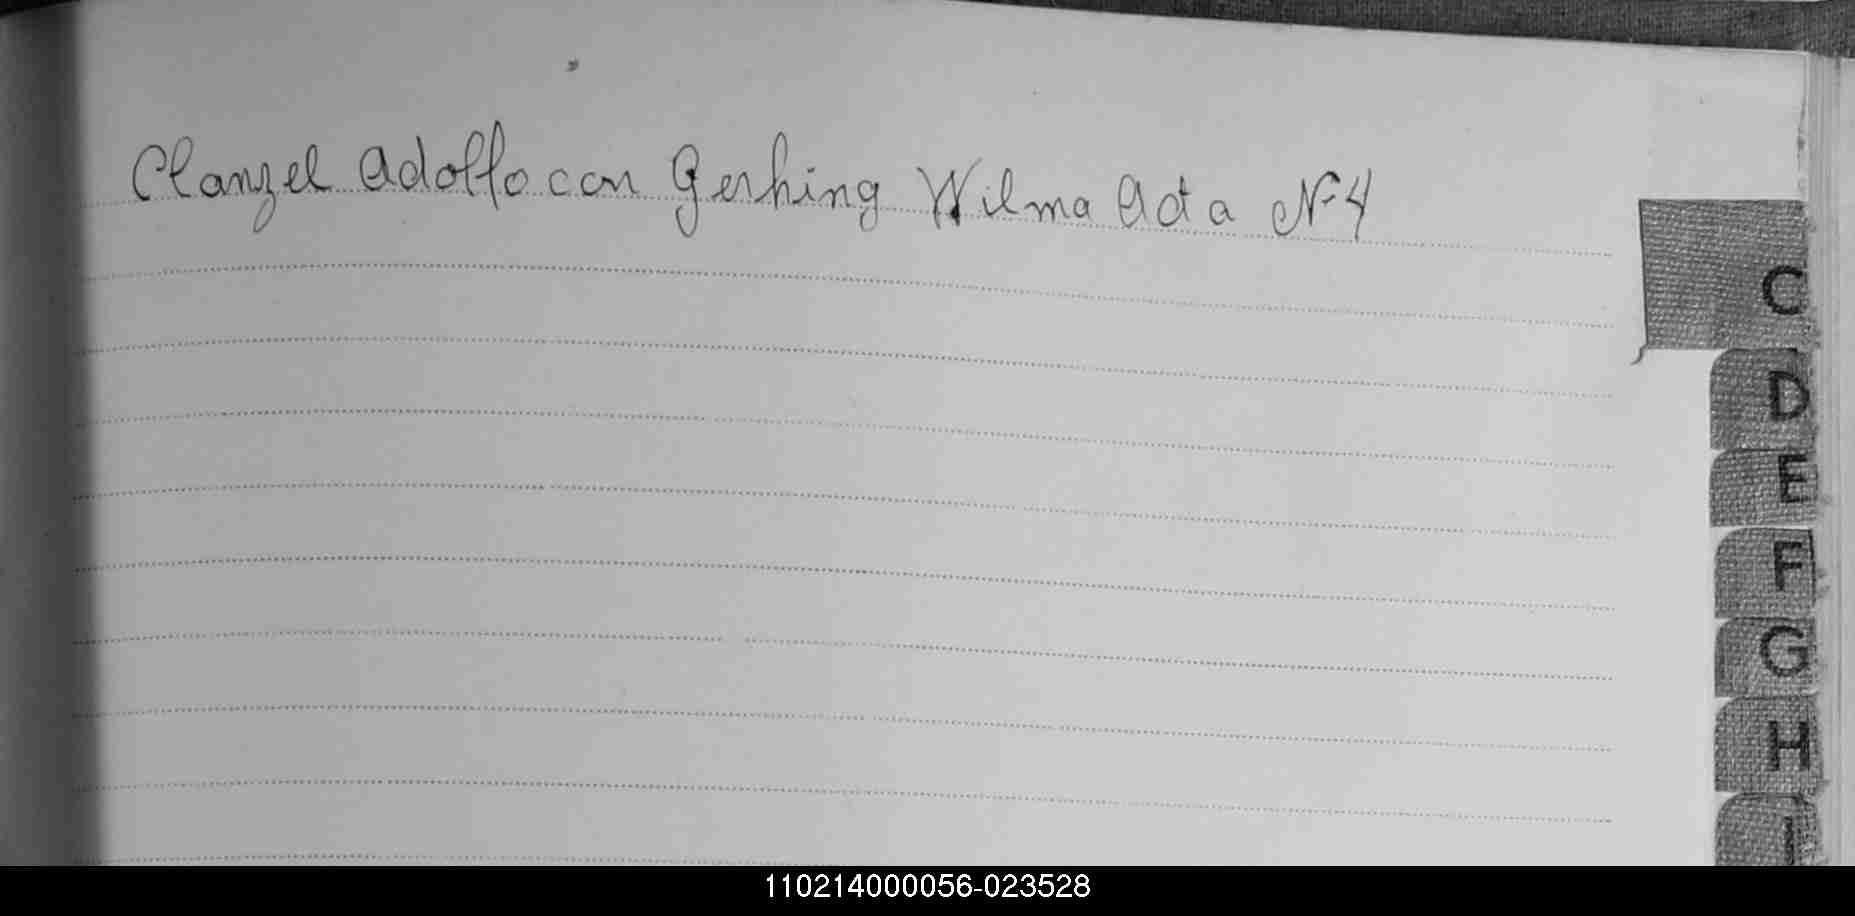 Clanzel Adolfo con Gerhing Wilma Acta Nº 4
C
D
E
F
G
H
I
110214000056-023528